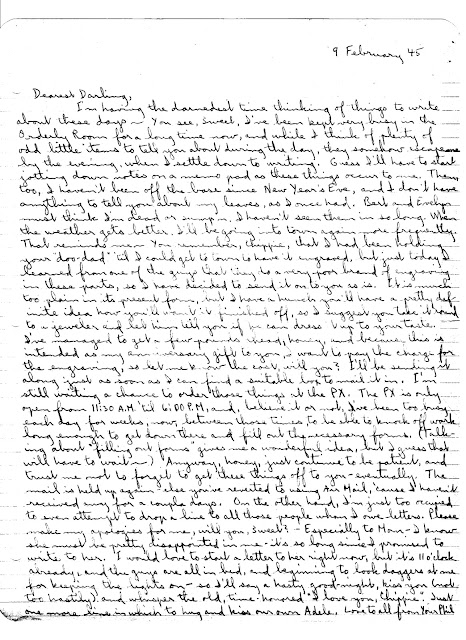 9 February 45
Dearest Darling,
I'm having the darnedest time thinking of things to write
about these days - You see, Sweet, I've been kept very busy in the
Orderly Room for a long time now, and while I think of plenty of
odd little items to tell you about during the day, they somehow escape me
by the evening, when I settle down to writing. Guess I'll have to start
jotting down notes on a memo pad as these things occur to me. Then,
too, I haven't been off the base since New Year's Eve, and I don't have
anything to tell you about my leaves, as I once had. Bert and Evelyn
must think I'm dead or sump'n, I haven't seen them in so long. When
the weather gets better, I'll be going into town again more frequently.
That reminds me - You remember, Chippie, that I had been holding
your "doo-dad" 'til I could get to town to have it engraved, but just today I
learned from one of the guys that they do a very poor brand of engraving
in these parts, so I have decided to send it on to you as is. It is much
too plain in its present form, but I have a hunch you'll have a pretty def-
inite idea how you'll want it finished off, so I suggest you take it 'round
to a jeweler and let him tell you if he can dress it up to your taste.
I've managed to get a few pounds ahead, honey, and because this is
intended as my anniversary gift to you, I want to pay the charge for
the engraving, so let me know the cost, will you? I'll be sending it
along just as soon as I can find a suitable box to mail it in. I'm
still waiting a chance to order those things at the PX. The PX is only
open from 11:30 A.M. 'til 6:00 P.M., and, believe it or not, I've been too busy
each day for weeks, now, between those times to be able to knock off work
long enough to get down there and fill out the necessary forms. (Talk-
ing about "filling out forms" gives me a wonderful idea, but I guess that
will have to wait -) Anyway, honey, just continue to be patient, and
trust me not to forget to get these things off to you - eventually. The
mail is held up again, else you've reverted to using Air Mail, 'cause I haven't
received any for a couple days. On the other hand, I'm just too occupied
to even attempt to drop a line to all those people whom I owe letters. Please
make my apologies for me, will you, Sweet? - Especially to Mom - I know
she must be pretty disappointed in me - it's so long since I promised to
write to her. I would love to start a letter to her right now, but it's 11 o'clock
already, and the guys are all in bed, and beginning to look daggers at me
for keeping the lights on - so I'll say a hasty goodnight, kiss you (not
too hastily) and whisper the old, time-honored "I love you, Chippie". Just
one more line in which to hug and kiss our own Adele. Love to all from Your Phil